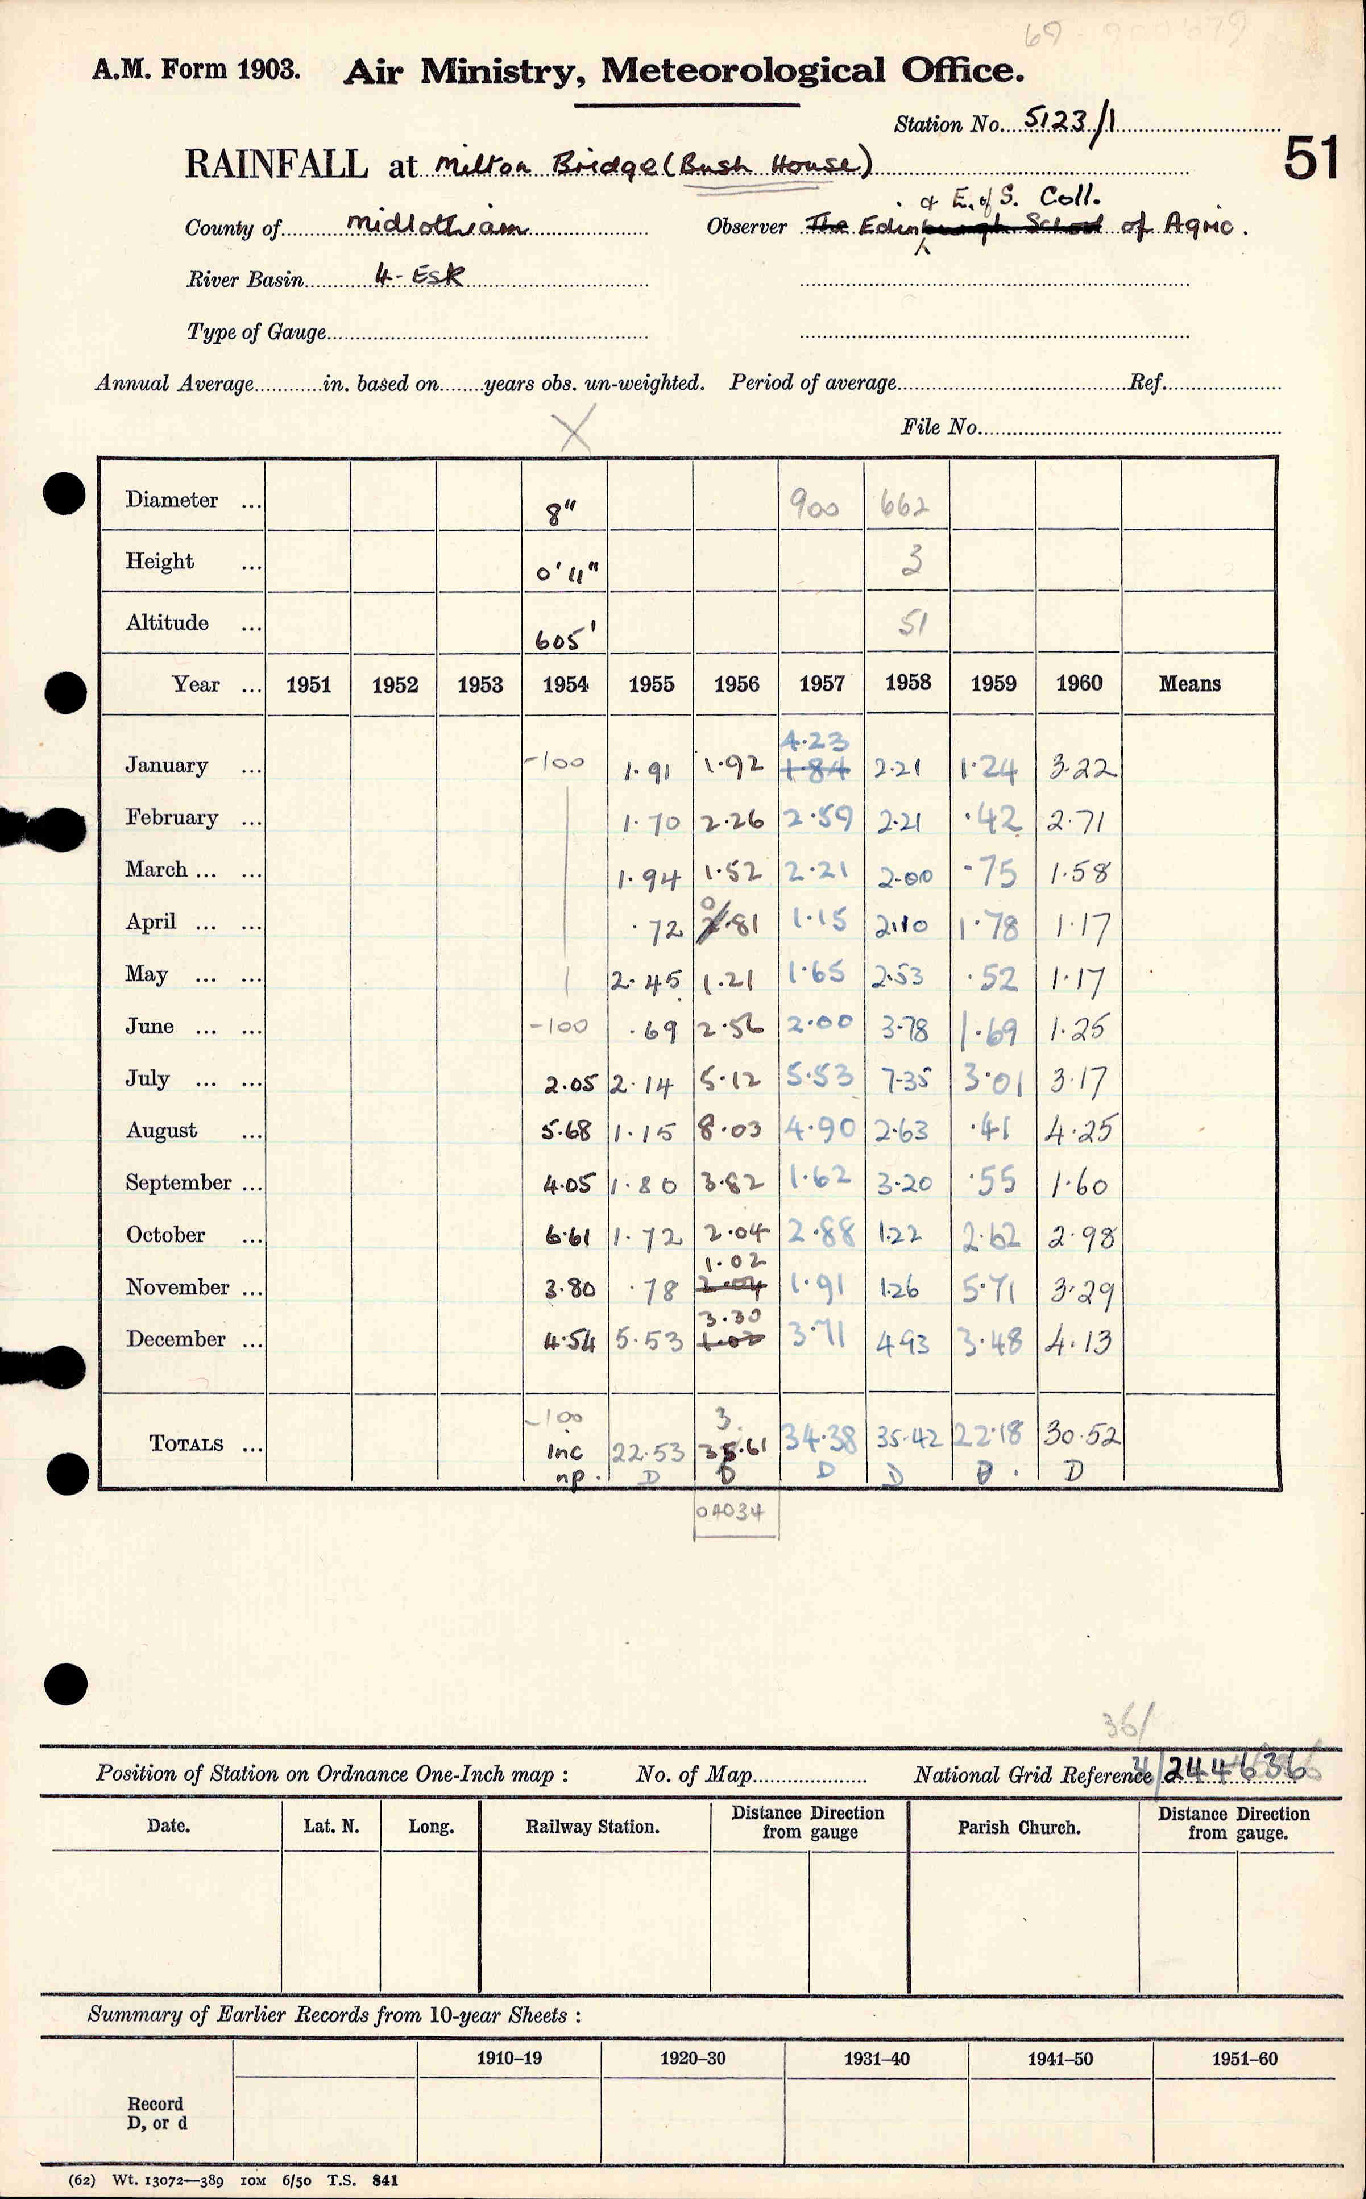 A.M. Form 1903. Air Ministry, Meteorological Office.
Station No. 5123/1
51
RAINFALL at Milton Bridge (Bush House)
& E. of S. Coll.
County of Midlothian Observer The Edinburgh School of Agric.
River Basin 4-Esk
Type of Gauge
Annual Average in. based on years obs. un-weighted. Period of average Ref.
X
File No.
Diameter ... 8" 900 662
Height ... 0' 11" 3
Altitude ... 605' 51
Year ... 1951 1952 1953 1954 1955 1956 1957 1958 1959 1960 Means
4.23
January ... -100 1.91 1.92 1.84 2.21 1.24 3.22
February ... 1.70 2.26 2.59 2.21 .42 2.71
March ... ... 1.94 1.52 2.21 2.00 .75 1.58
0
April ... ... .72 2.81 1.15 2.10 1.78 1.17
May ... ... 2.45 1.21 1.65 2.53 .52 1.17
June ... ... -100 .69 2.56 2.00 3.78 1.69 1.25
July ... ... 2.05 2.14 5.12 5.53 7.35 3.01 3.17
August ... 5.68 1.15 8.03 4.90 2.63 .41 4.25
September ... 4.05 1.80 3.82 1.62 3.20 .55 1.60
October ... 6.61 1.72 2.04 2.88 1.22 2.62 2.98
1.02
November ... 3.80 .78 2.04 1.91 1.26 5.71 3.29
3.30
December ... 4.54 5.53 1.02 3.71 4.93 3.48 4.13
-100 3
TOTALS ... inc 22.53 35.61 34.38 35.42 22.18 30.52
np. D D D D D D
04034
36/
Position of Station on Ordnance One-Inch map : No. of Map National Grid Reference 244636
Date. Lat. N. Long. Railway Station. Distance Direction from gauge Parish Church. Distance Direction from gauge.
Summary of Earlier Records from 10-year Sheets :
1910-19 1920-30 1931-40 1941-50 1951-60
Record
D, or d
(62) Wt. 13072—389 10M 6/50 T.S. 841